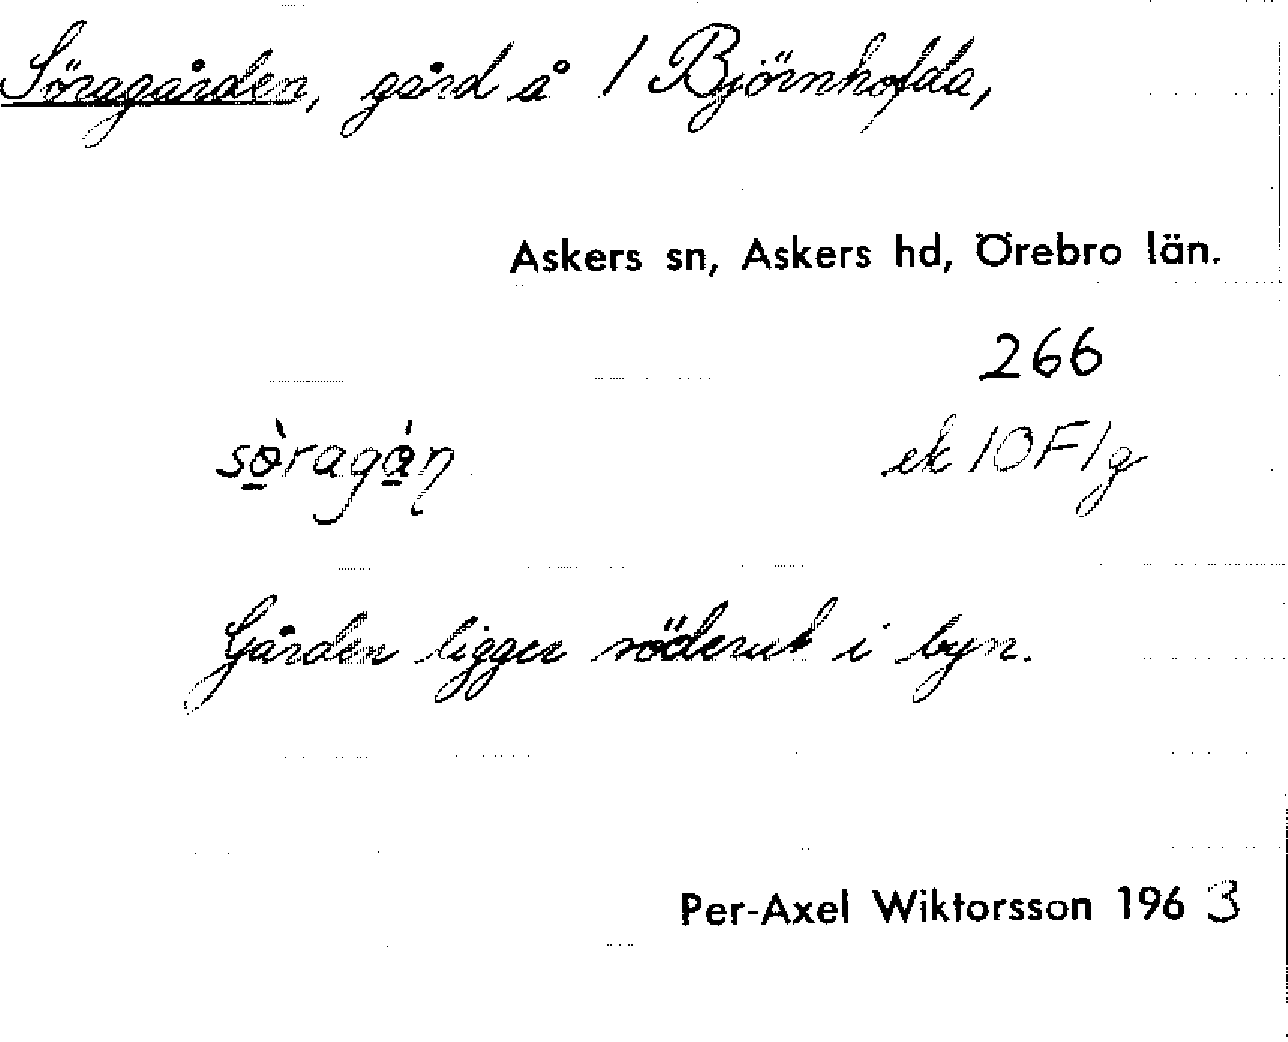 Söragården, gård å 1 Björnhofda,
Askers sn, Askers hd, Örebro län.
266
sø̀ragán
ek 10F1g
Gården ligger söderut i byn.
Per-Axel Wiktorsson 1963